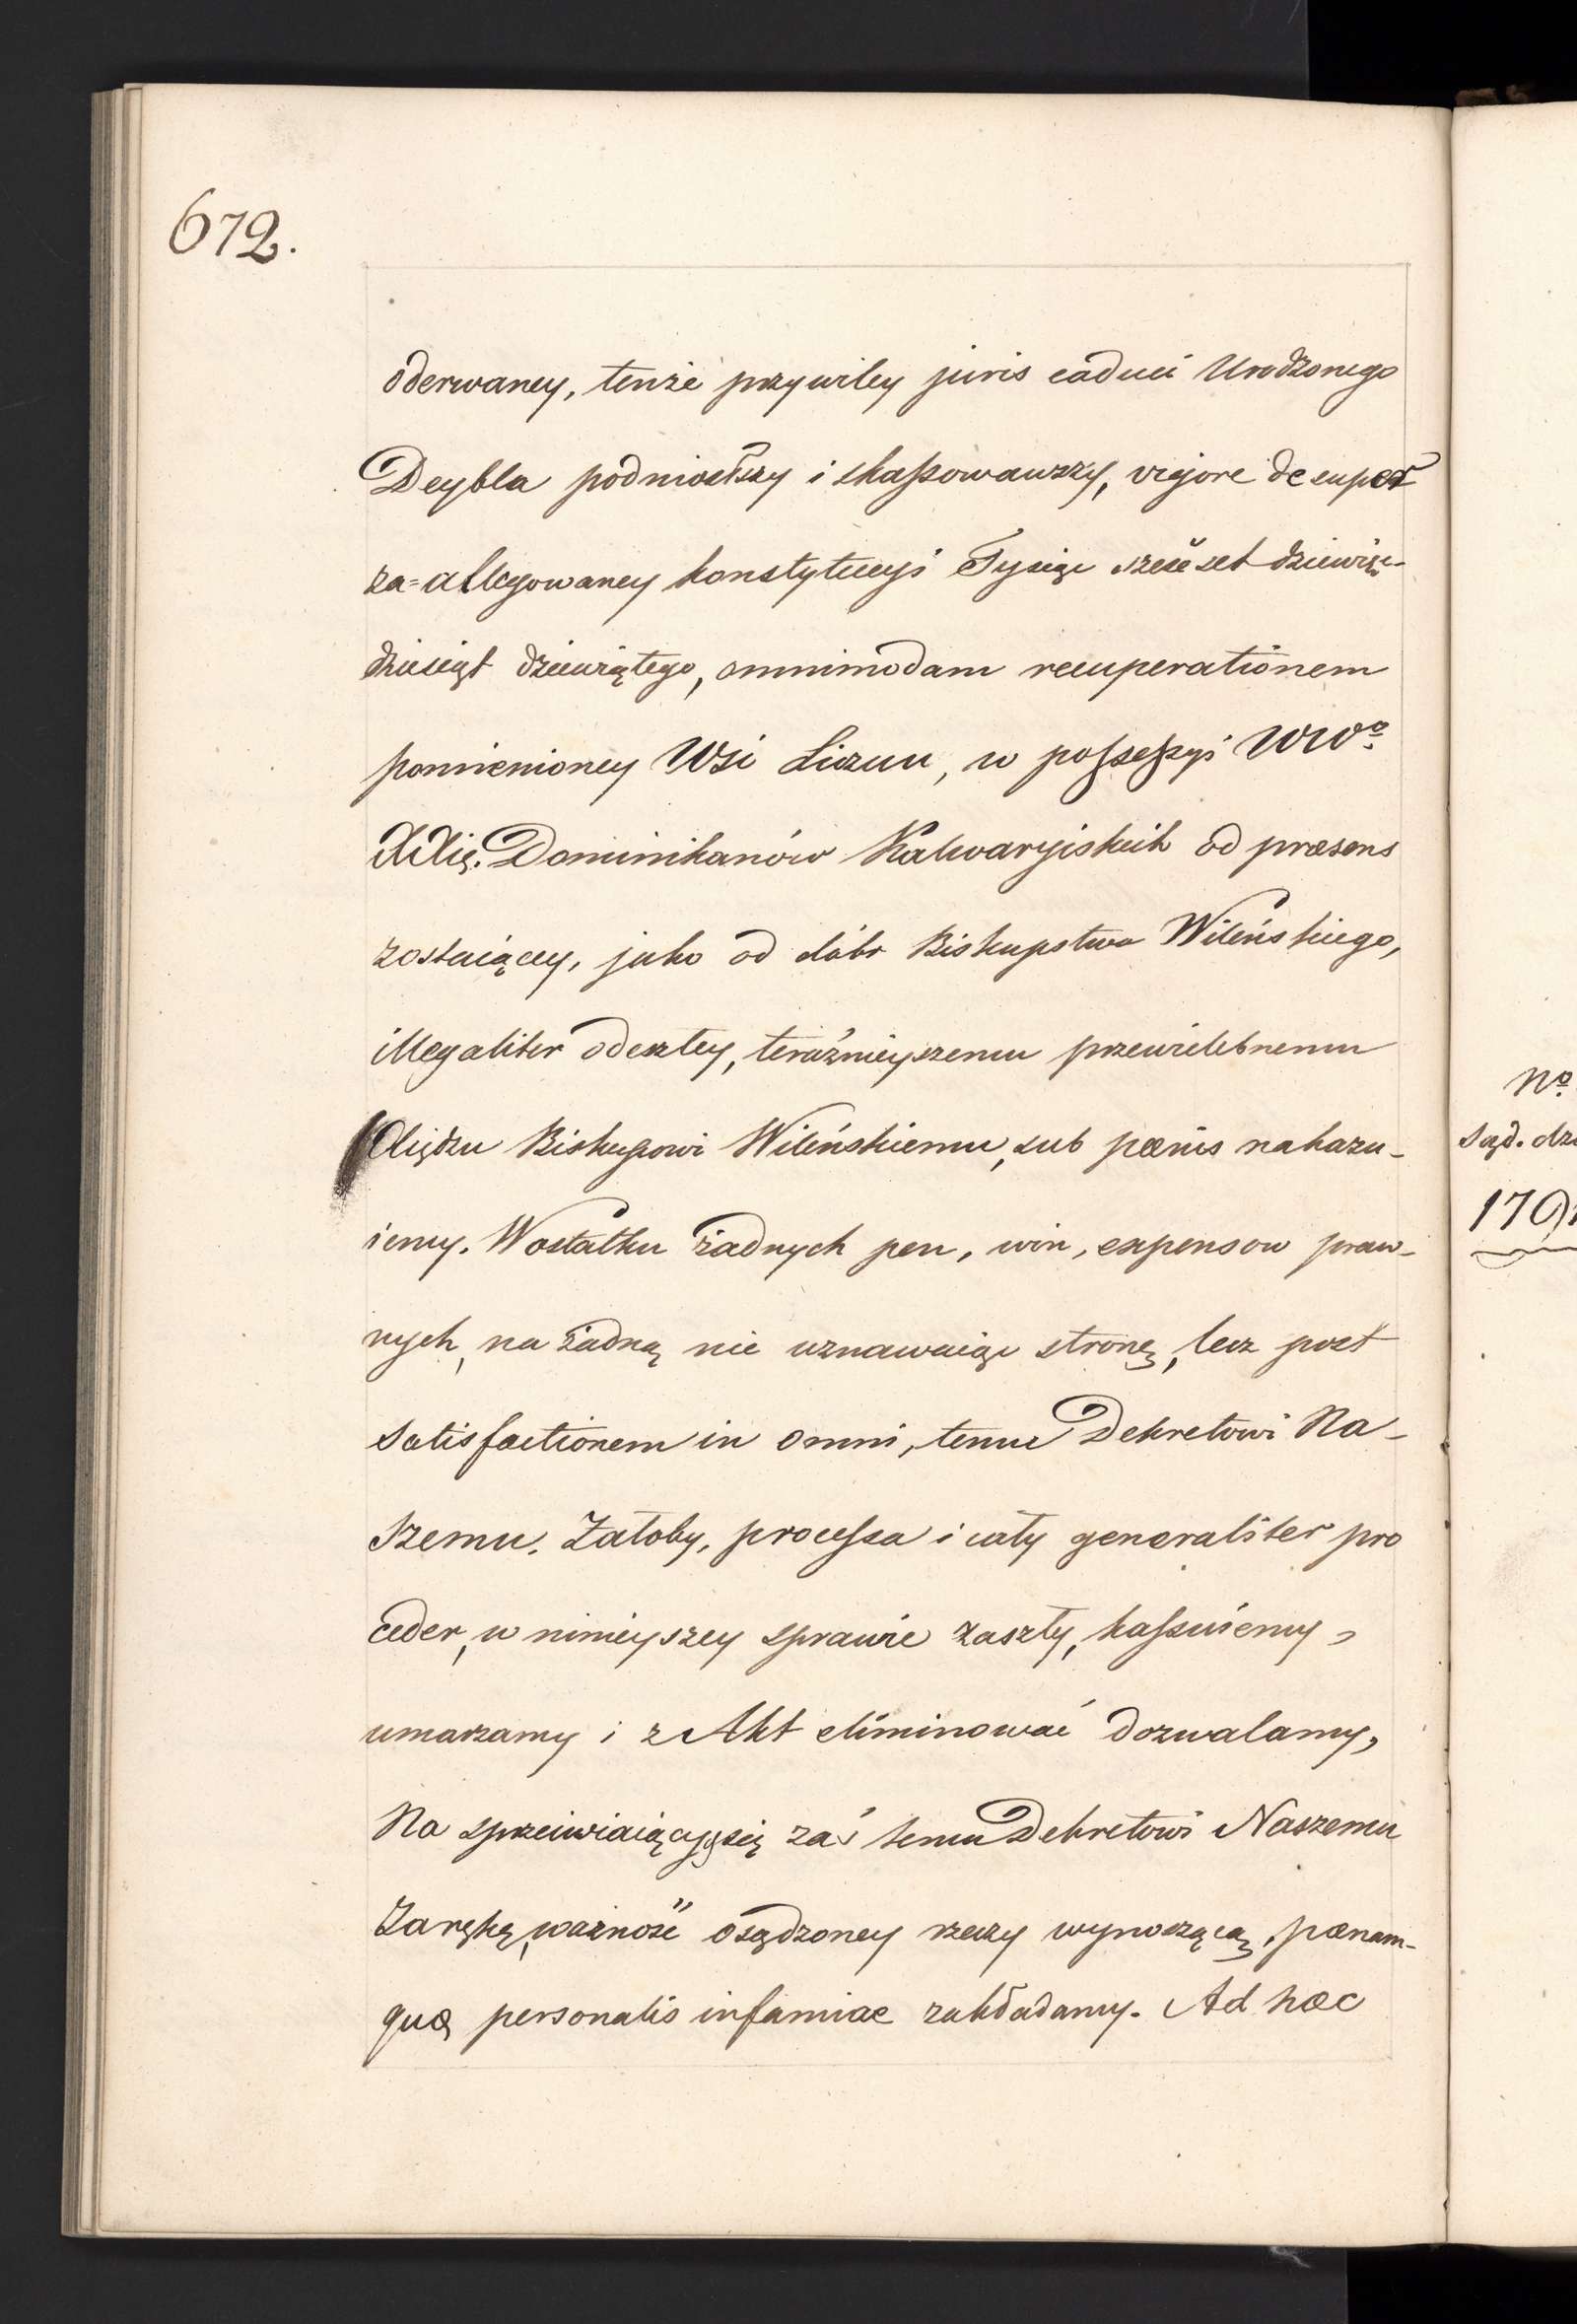 672.
oderwaney, tenże przywiley juris caduci Urodzonego
Deybla podniosłszy i skassowawszy, vigore de super
za=allegowaney konstytucyi Tysiąc sześćset dziewięć-
dziesiąt dziewiątego, omnimodam recuperationem
pomienioney Wsi Liczun, w possessyi WWo
XXię. Dominikanów Kalwaryiskich od præsens
zostaiącey, jako od dóbr Biskupstwa Wileńskiego,
illegaliter odeszłey, teraźnieyszemu przewielebnemu
Xiędzu Biskupowi Wileńskiemu, sub pœnis nakazu-
iemy. Wostatku żadnych pen, win, expensow praw-
nych, na żadną nie uznawaiąc stronę, lecz post
satisfactionem in omni, temu Dekretowi Na-
szemu. Żałoby, processa i cały generaliter pro
ceder, w ninieyszey sprawie zaszły, kassuiemy,
umarzamy i z Akt eliminować dozwalamy,
Na sprzeiwiaiących się zaś temu Dekretowi Naszemu
Zarękę, ważność osądzoney rzeczy wynoszącą, pœnam-
que personalis infamiae zakładamy. Ad hoc
No
Sąd. dzi
179